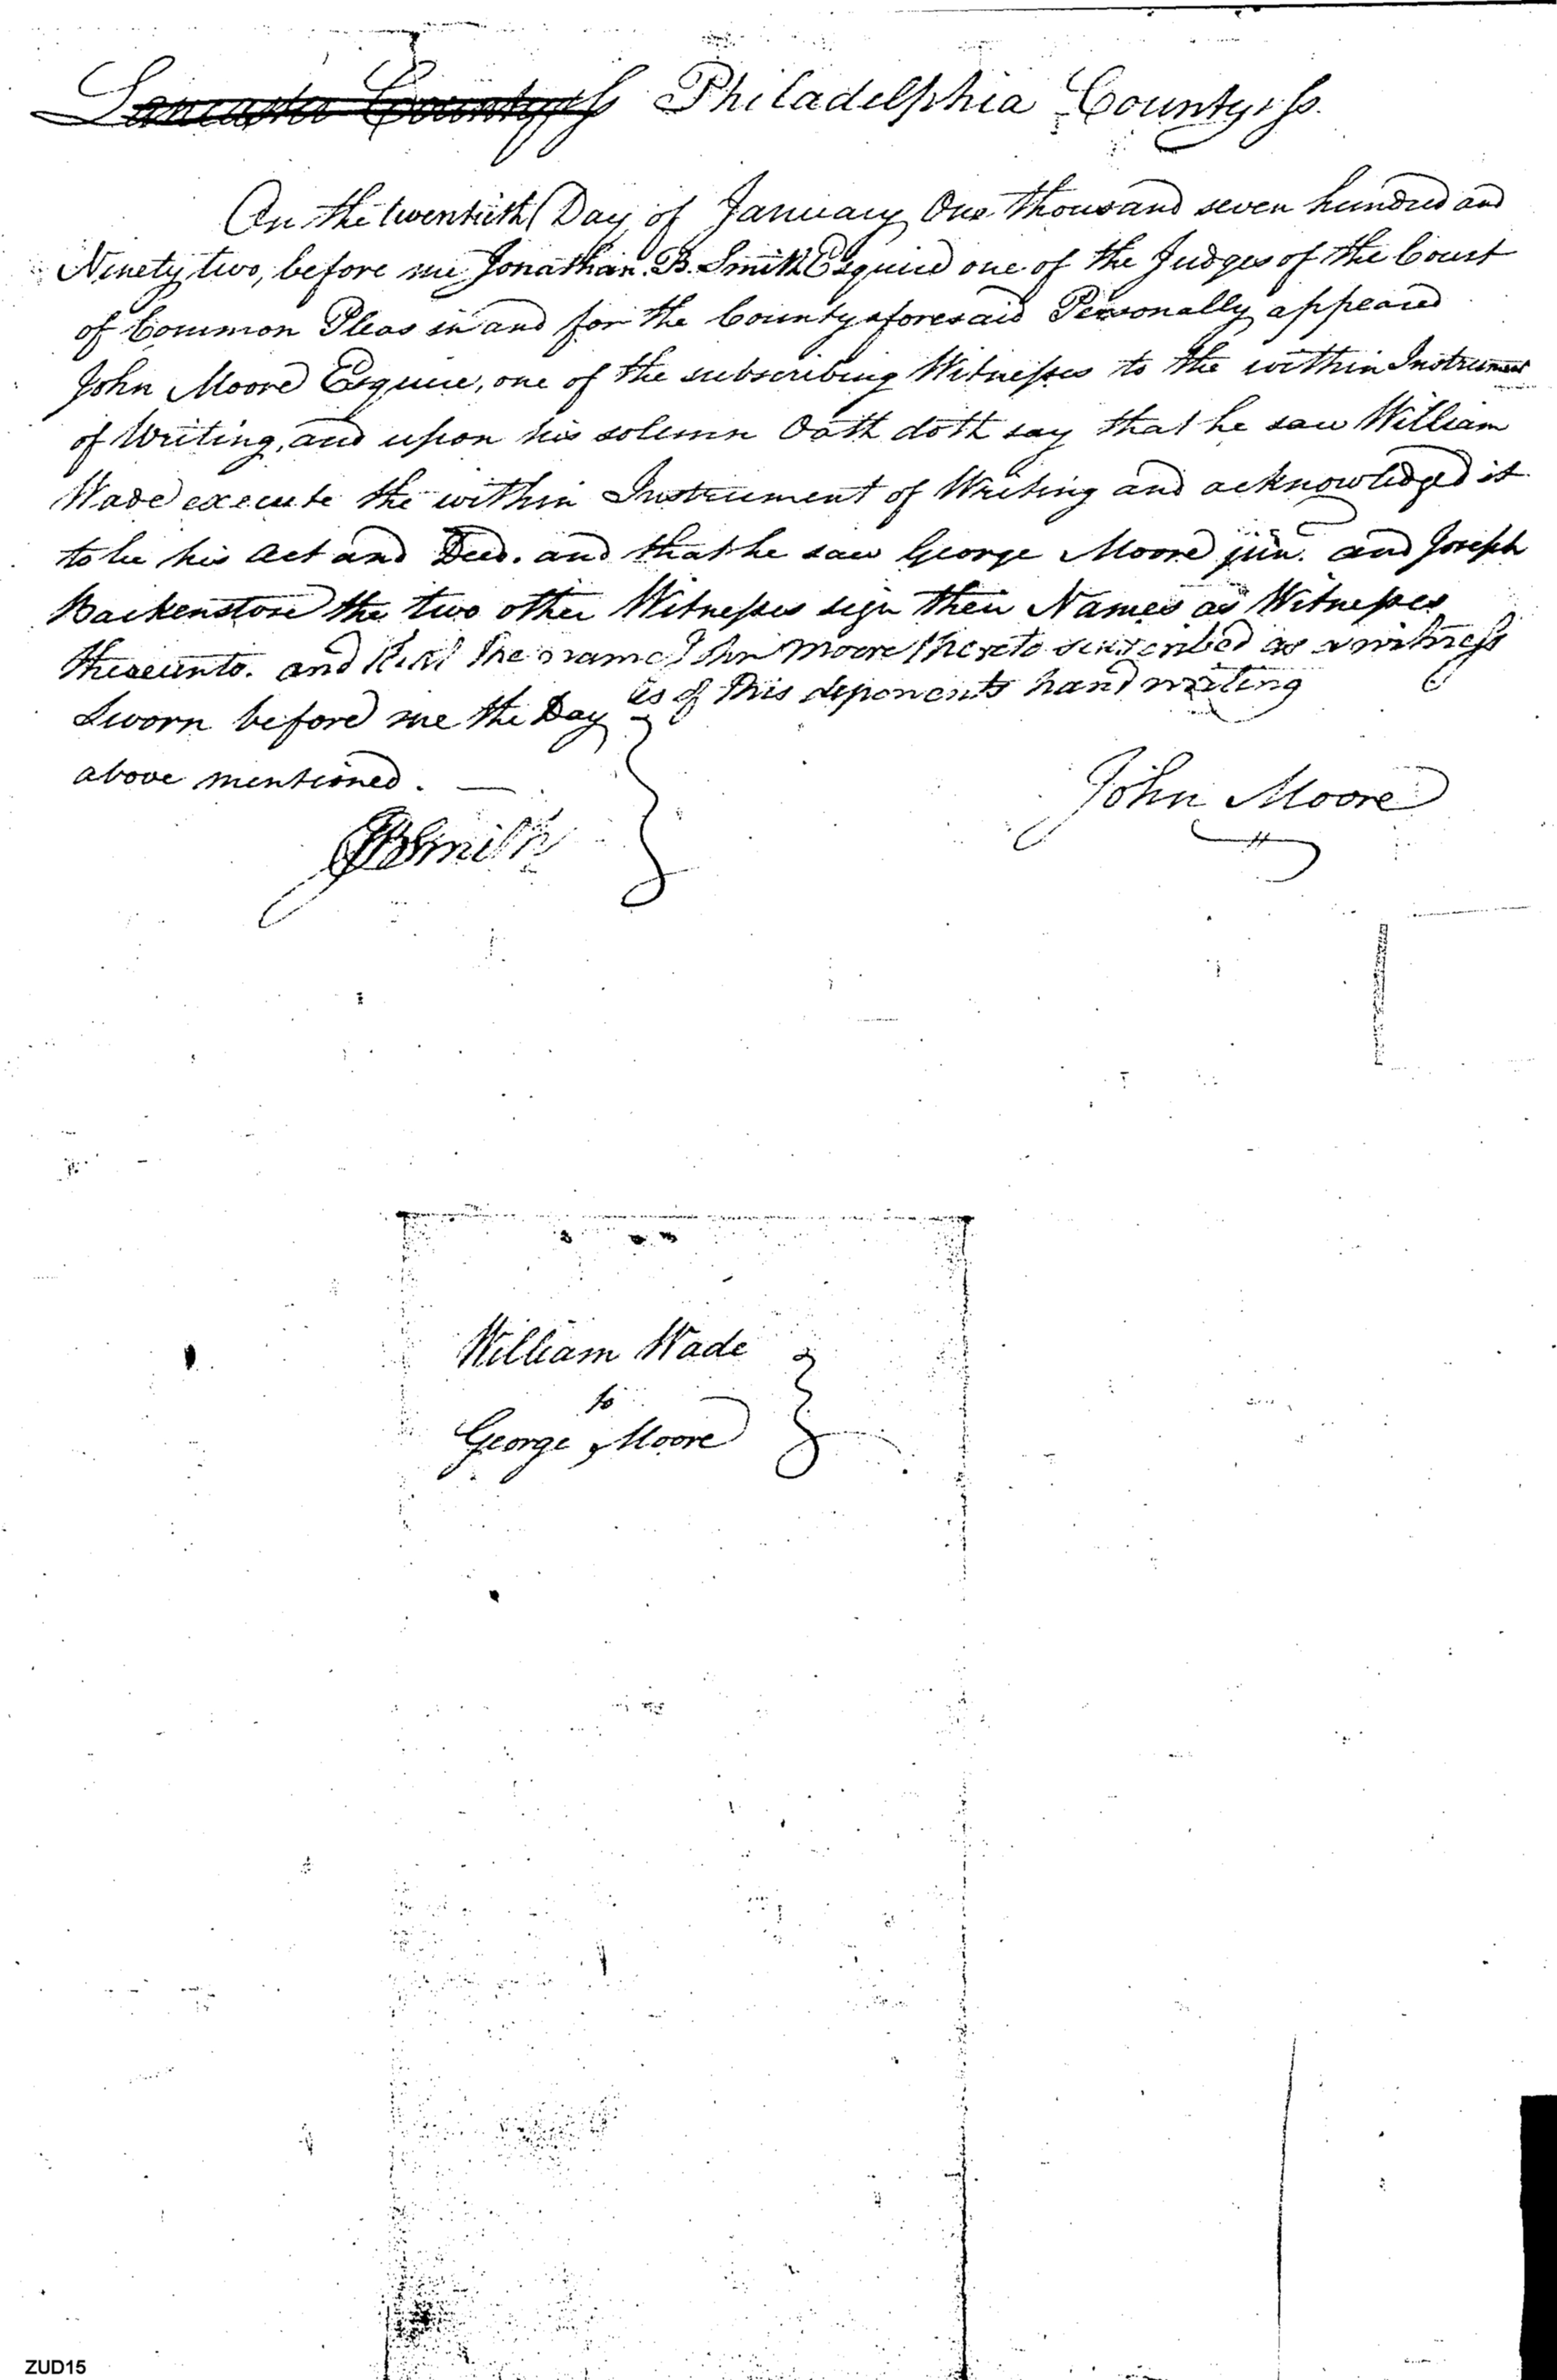 Lancaster County ss Philadelphia County, ss.
On the twentieth Day of January One thousand seven hundred and
Ninety two, before me Jonathan B. Smith Esquire one of the Judges of the Court
of Common Pleas in and for the County aforesaid Personally appeared
John Moore Esquire, one of the subscribing Witnesses to the within Instrument
of Writing, and upon his solemn Oath doth say that he saw William
Wade execute the within Instrument of Writing and acknowledged it
to be his Act and Deed. and that he saw George Moore jun. and Joseph
Backenstose the two other Witnesses sign their Names as Witnesses
thereunto. and that the name John Moore thereto subscribed as a witness
is of this deponents hand writing
Sworn before me the Day
above mentioned.
John Moore
JB Smith
William Wade
to
George Moore
ZUD15